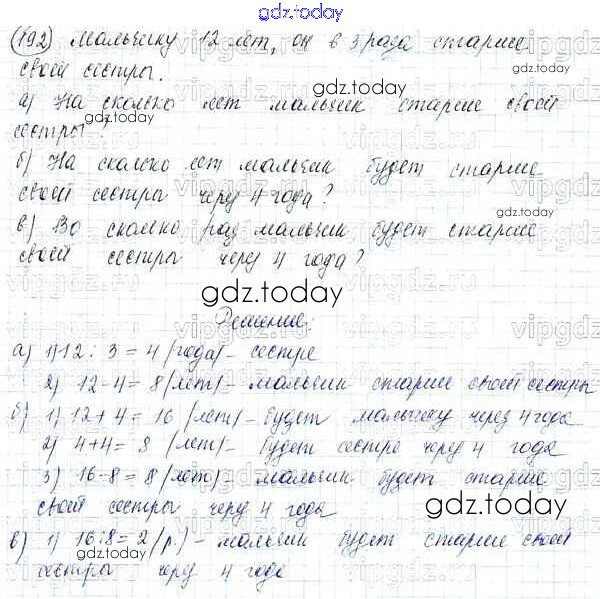 gdz.today
192) Мальчику 12 лет, он в 3 раза старше
своей сестры.
gdz.today
а) На сколько лет мальчик старше своей
сестры?
gdz.today
б) На сколько лет мальчик будет старше
своей сестры черу 4 года?
gdz.today
в) Во сколько раз мальчик будет старше
своей сестры черу 4 года?
gdz.today
Решение:
а) 1) 12 : 3 = 4 (года) - сестре
2) 12-4 = 8 (лет) - мальчик старше своей сестры
б) 1) 12 + 4 = 16 (лет) - будет мальчику через 4 года
2) 4+4 = 8 (лет) - будет сестре черу 4 года
3) 16-8 = 8 (лет) - мальчик будет старше
своей сестры черу 4 года
gdz.today
в) 1) 16:8 = 2 (р.) - мальчик будет старше своей
gdz.today
сестры черу 4 года
gdz.today